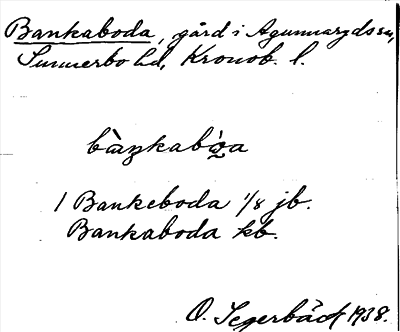 Bankaboda, gård i Agunnaryds sn,
Sunnerbo hd, Kronob. l.
bàŋkabó̯a
1 Bankeboda 1/8 jb.
Bankaboda kb.
O. Segerbäck 1938.